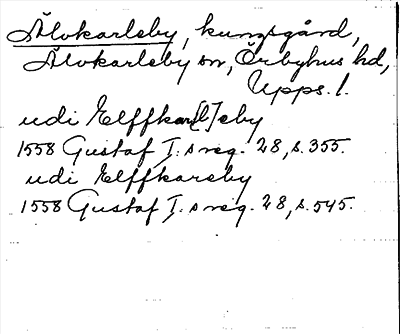 Älvkarleby, kungsgård,
Älvkarleby sn, Örbyhus hd,
Upps. l.
udi Elffkar[l]eby
1558 Gustaf I:s reg. 28, s. 355.
udi Elffkareby
1558 Gustaf I:s reg. 28, s. 545.